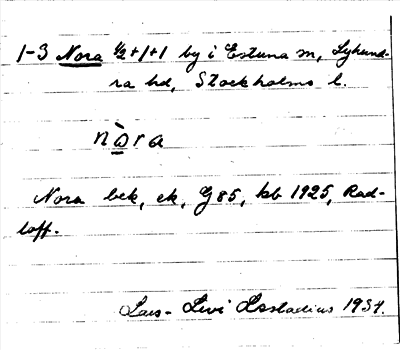 1-3 Nora ½+1+1 by i Estuna sn, Lyhund-
ra hd, Stockholms l.
nọ̀ra
Nora bek, ek, G 85, kb 1925, Rad-
loff.
Lars-Levi Læstadius 1934.